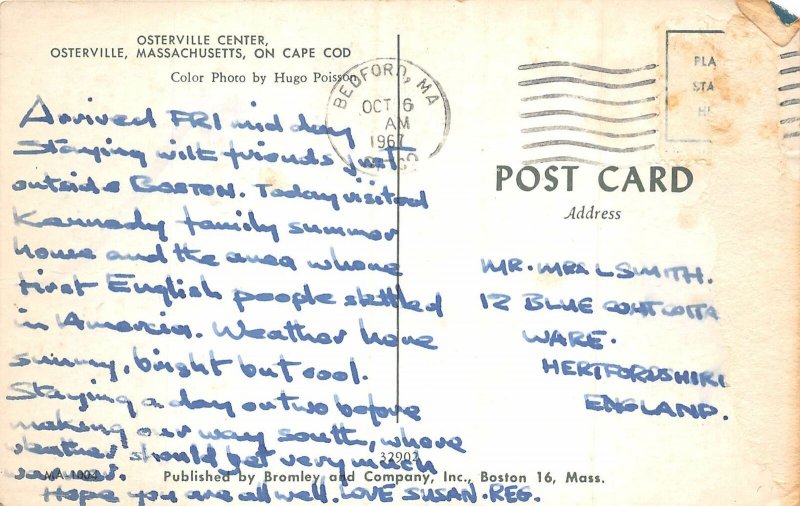 OSTERVILLE CENTER,
OSTERVILLE, MASSACHUSETTS, ON CAPE COD
Color Photo by Hugo Poisson
BEDFORD, MA
OCT 6
AM
1967
PLA
STA
H
POST CARD
Address
Arrived FRI mid day
Staying with friends just
outside BOSTON. Today visited
Kennedy family summer
home and the area where
first English people settled
in America. Weather here
sunny, bright but cool.
Staying a day or two before
making our way south, where
weather should get very much
warmer.
Hope you are all well. LOVE SUSAN. REG.
MR. MRS L SMITH.
12 BLUE
WARE.
HERTFORDSHIRE
ENGLAND.
32902
MA-1004
Published by Bromley and Company, Inc., Boston 16, Mass.